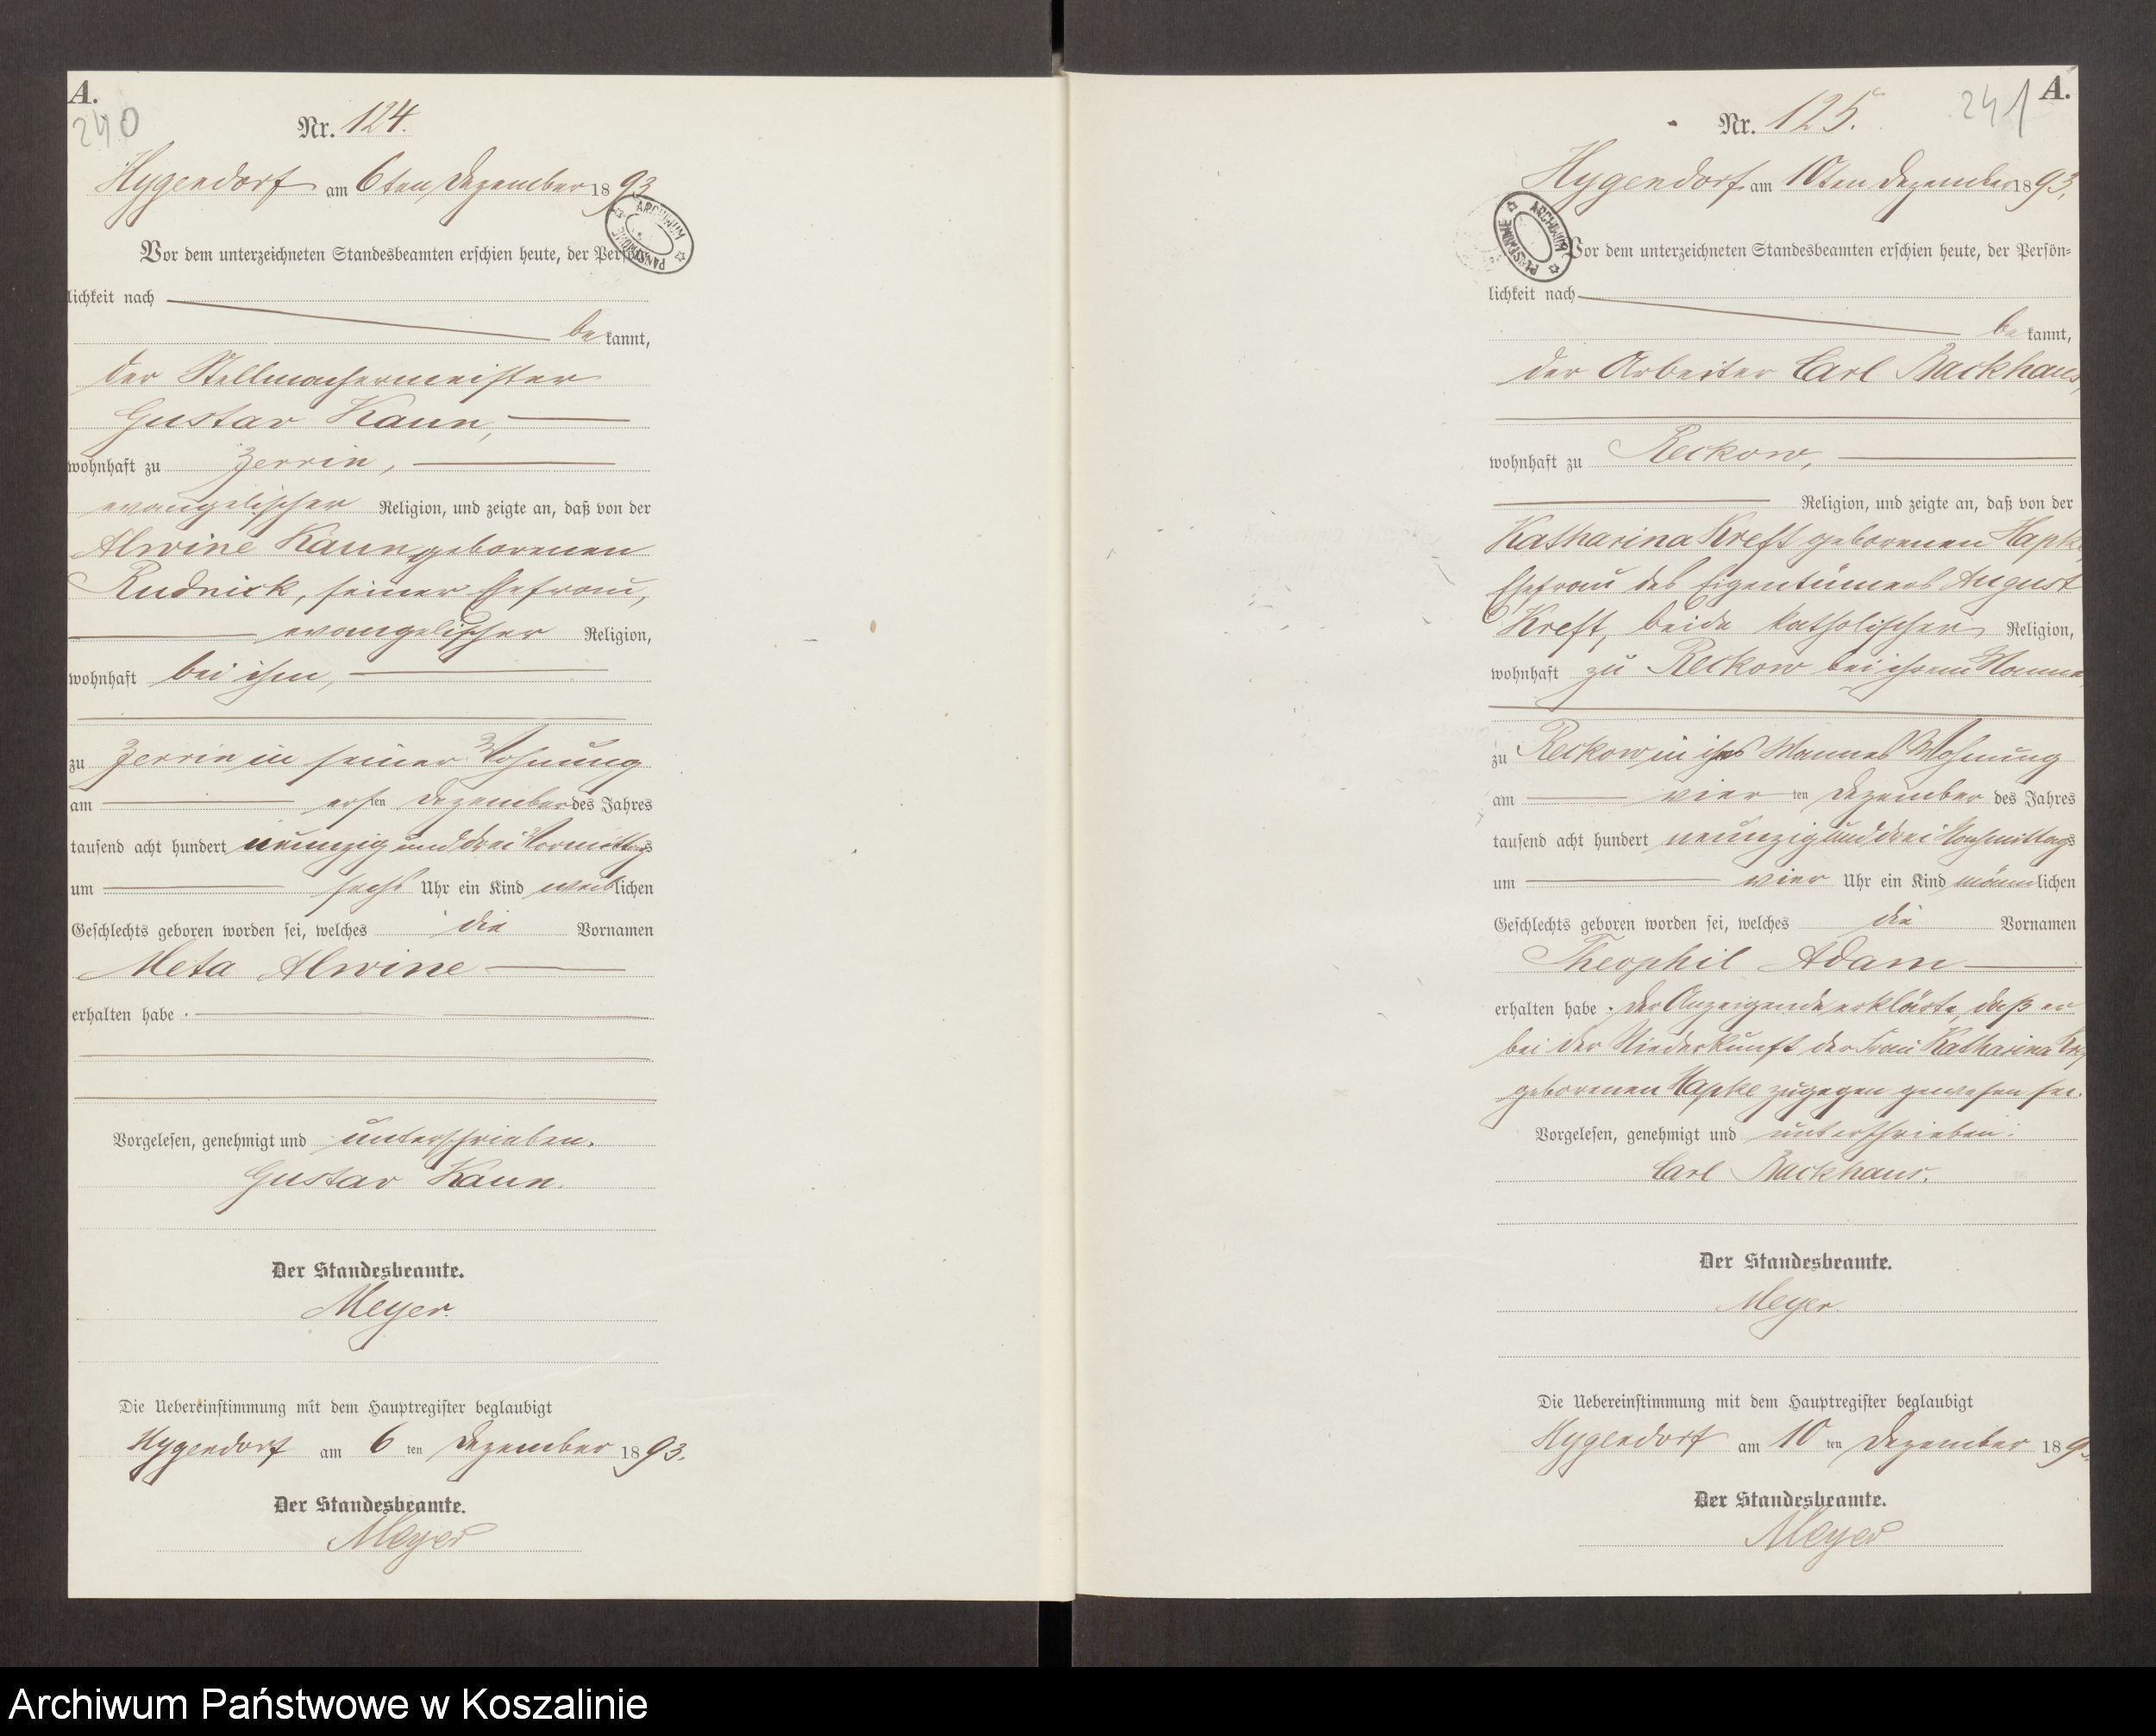 A.
240
Nr. 124.
Hygendorf am 6ten Dezember 1893
Vor dem unterzeichneten Standesbeamten erschien heute, der Persön-
lichkeit nach
bekannt,
der Stellmachermeister
Gustav Kaun,
wohnhaft zu Zerrin,
evangelischer Religion, und zeigte an, daß von der
Alwine Kaun geborenen
Rudnick, seiner Ehefrau,
evangelischer Religion,
wohnhaft bei ihm,
zu Zerrin in seiner Wohnung
am ersten Dezember des Jahres
tausend acht hundert neunzig und drei Vormittags
um sechs Uhr ein Kind weiblichen
Geschlechts geboren worden sei, welches die Vornamen
Meta Alwine
erhalten habe.
Vorgelesen, genehmigt und unterschrieben.
Gustav Kaun.
Der Standesbeamte.
Meyer.
Die Uebereinstimmung mit dem Hauptregister beglaubigt
Hygendorf am 6ten Dezember 1893.
Der Standesbeamte.
Meyer
ARCHIWUM PAŃSTWOWE
A.
241
Nr. 125.
Hygendorf am 10ten Dezember 1893.
Vor dem unterzeichneten Standesbeamten erschien heute, der Persön-
lichkeit nach
bekannt,
der Arbeiter Carl Backhaus,
wohnhaft zu Reckow,
Religion, und zeigte an, daß von der
Katharina Kreft geborenen Hapke
Ehefrau des Eigentümers August
Kreft, beide katholischer Religion,
wohnhaft zu Reckow bei ihrem Manne
zu Reckow in ihres Mannes Wohnung
am vierten Dezember des Jahres
tausend acht hundert neunzig und drei Nachmittags
um vier Uhr ein Kind männlichen
Geschlechts geboren worden sei, welches die Vornamen
Theophil Adam
erhalten habe. Der Anzeigende erklärte, daß er
bei der Niederkunft der Frau Katharina
geborenen Hapke zugegen gewesen sei.
Vorgelesen, genehmigt und unterschrieben.
Carl Backhaus.
Der Standesbeamte.
Meyer.
Die Uebereinstimmung mit dem Hauptregister beglaubigt
Hygendorf am 10ten Dezember 189
Der Standesbeamte.
Meyer
ARCHIWUM PAŃSTWOWE
Archiwum Państwowe w Koszalinie